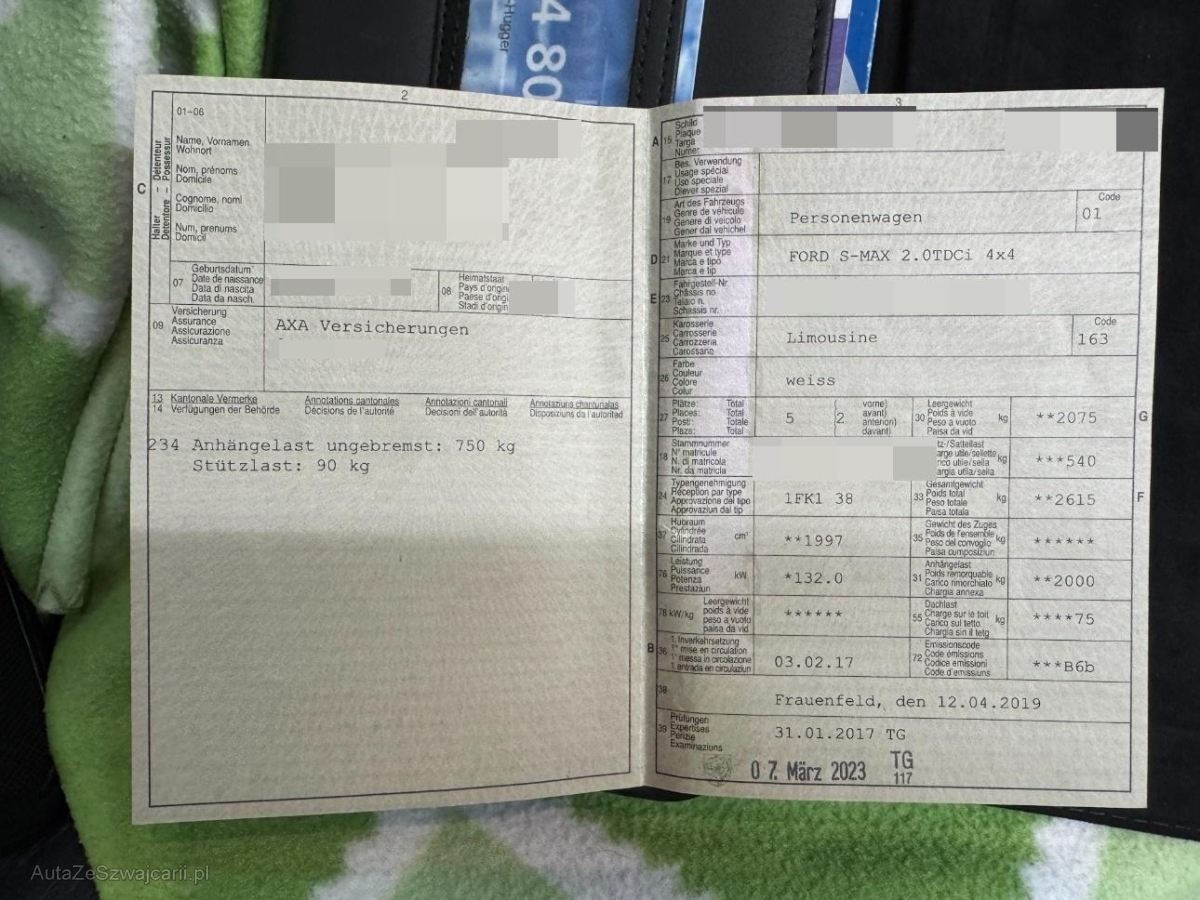 Hugger
4 80
2
01-06
Halter – Détenteur
Detentore – Possessur
C
Name, Vornamen
Wohnort
Nom, prénoms
Domicile
Cognome, nomi
Domicilio
Num, prenums
Domicil
07
Geburtsdatum
Date de naissance
Data di nascita
Data da nasch.
08
Heimatstaat
Pays d'origin
Paese d'origi
Stadi d'origin
09
Versicherung
Assurance
Assicurazione
Assicuranza
AXA Versicherungen
13 Kantonale Vermerke Annotations cantonales Annotazioni cantonali Annotaziuns chantunalas
14 Verfügungen der Behörde Décisions de l'autorité Decisioni dell'autorità Disposiziuns da l'autoritad
234 Anhängelast ungebremst: 750 kg
Stützlast: 90 kg
3
A 15
Schild
Plaque
Targa
Numer
17
Bes. Verwendung
Usage spécial
Uso speciale
Diever spezial
19
Art des Fahrzeugs
Genre de véhicule
Genere di veicolo
Gener dal vehichel
Personenwagen
Code
01
D 21
Marke und Typ
Marque et type
Marca e tipo
Marca e tip
FORD S-MAX 2.0TDCi 4x4
E 23
Fahrgestell-Nr.
Châssis no
Telaio n.
Schassis nr.
25
Karosserie
Carrosserie
Carrozzeria
Carossaria
Limousine
Code
163
26
Farbe
Couleur
Colore
Colur
weiss
27
Plätze: Total
Places: Total
Posti: Totale
Plazs: Total
5
( vorne)
( avant)
( anteriori)
( davant)
2
30
Leergewicht
Poids à vide
Peso a vuoto
Paisa da vid
kg
**2075
G
18
Stammnummer
N° matricule
N. di matricola
Nr. da matricla
tz-/Sattellast
arge utile/sellette
rico utile/sella
argia utila/sella
kg
***540
24
Typengenehmigung
Réception par type
Approvazione del tipo
Approvaziun dal tip
1FK1 38
33
Gesamtgewicht
Poids total
Peso totale
Paisa totala
kg
**2615
F
37
Hubraum
Cylindrée
Cilindrata
Cilindrada
cm³
**1997
35
Gewicht des Zuges
Poids de l'ensemble
Peso del convoglio
Paisa cumposiziun
kg
******
76
Leistung
Puissance
Potenza
Prestaziun
kW
*132.0
31
Anhängelast
Poids remorquable
Carico rimorchiato
Chargia annexa
kg
**2000
78 kW/kg
Leergewicht
poids à vide
peso a vuoto
paisa da vid
******
55
Dachlast
Charge sur le toit
Carico sul tetto
Chargia sin il tetg
kg
****75
B 36
1. Inverkehrsetzung
1re mise en circulation
1a messa in circolazione
1. entrada en circulaziun
03.02.17
72
Emissionscode
Code émissions
Codice emissioni
Code d'emissiuns
***B6b
38
Frauenfeld, den 12.04.2019
39
Prüfungen
Expertises
Perizie
Examinaziuns
31.01.2017 TG
07. März 2023
TG
117
AutaZeSzwajcarii.pl